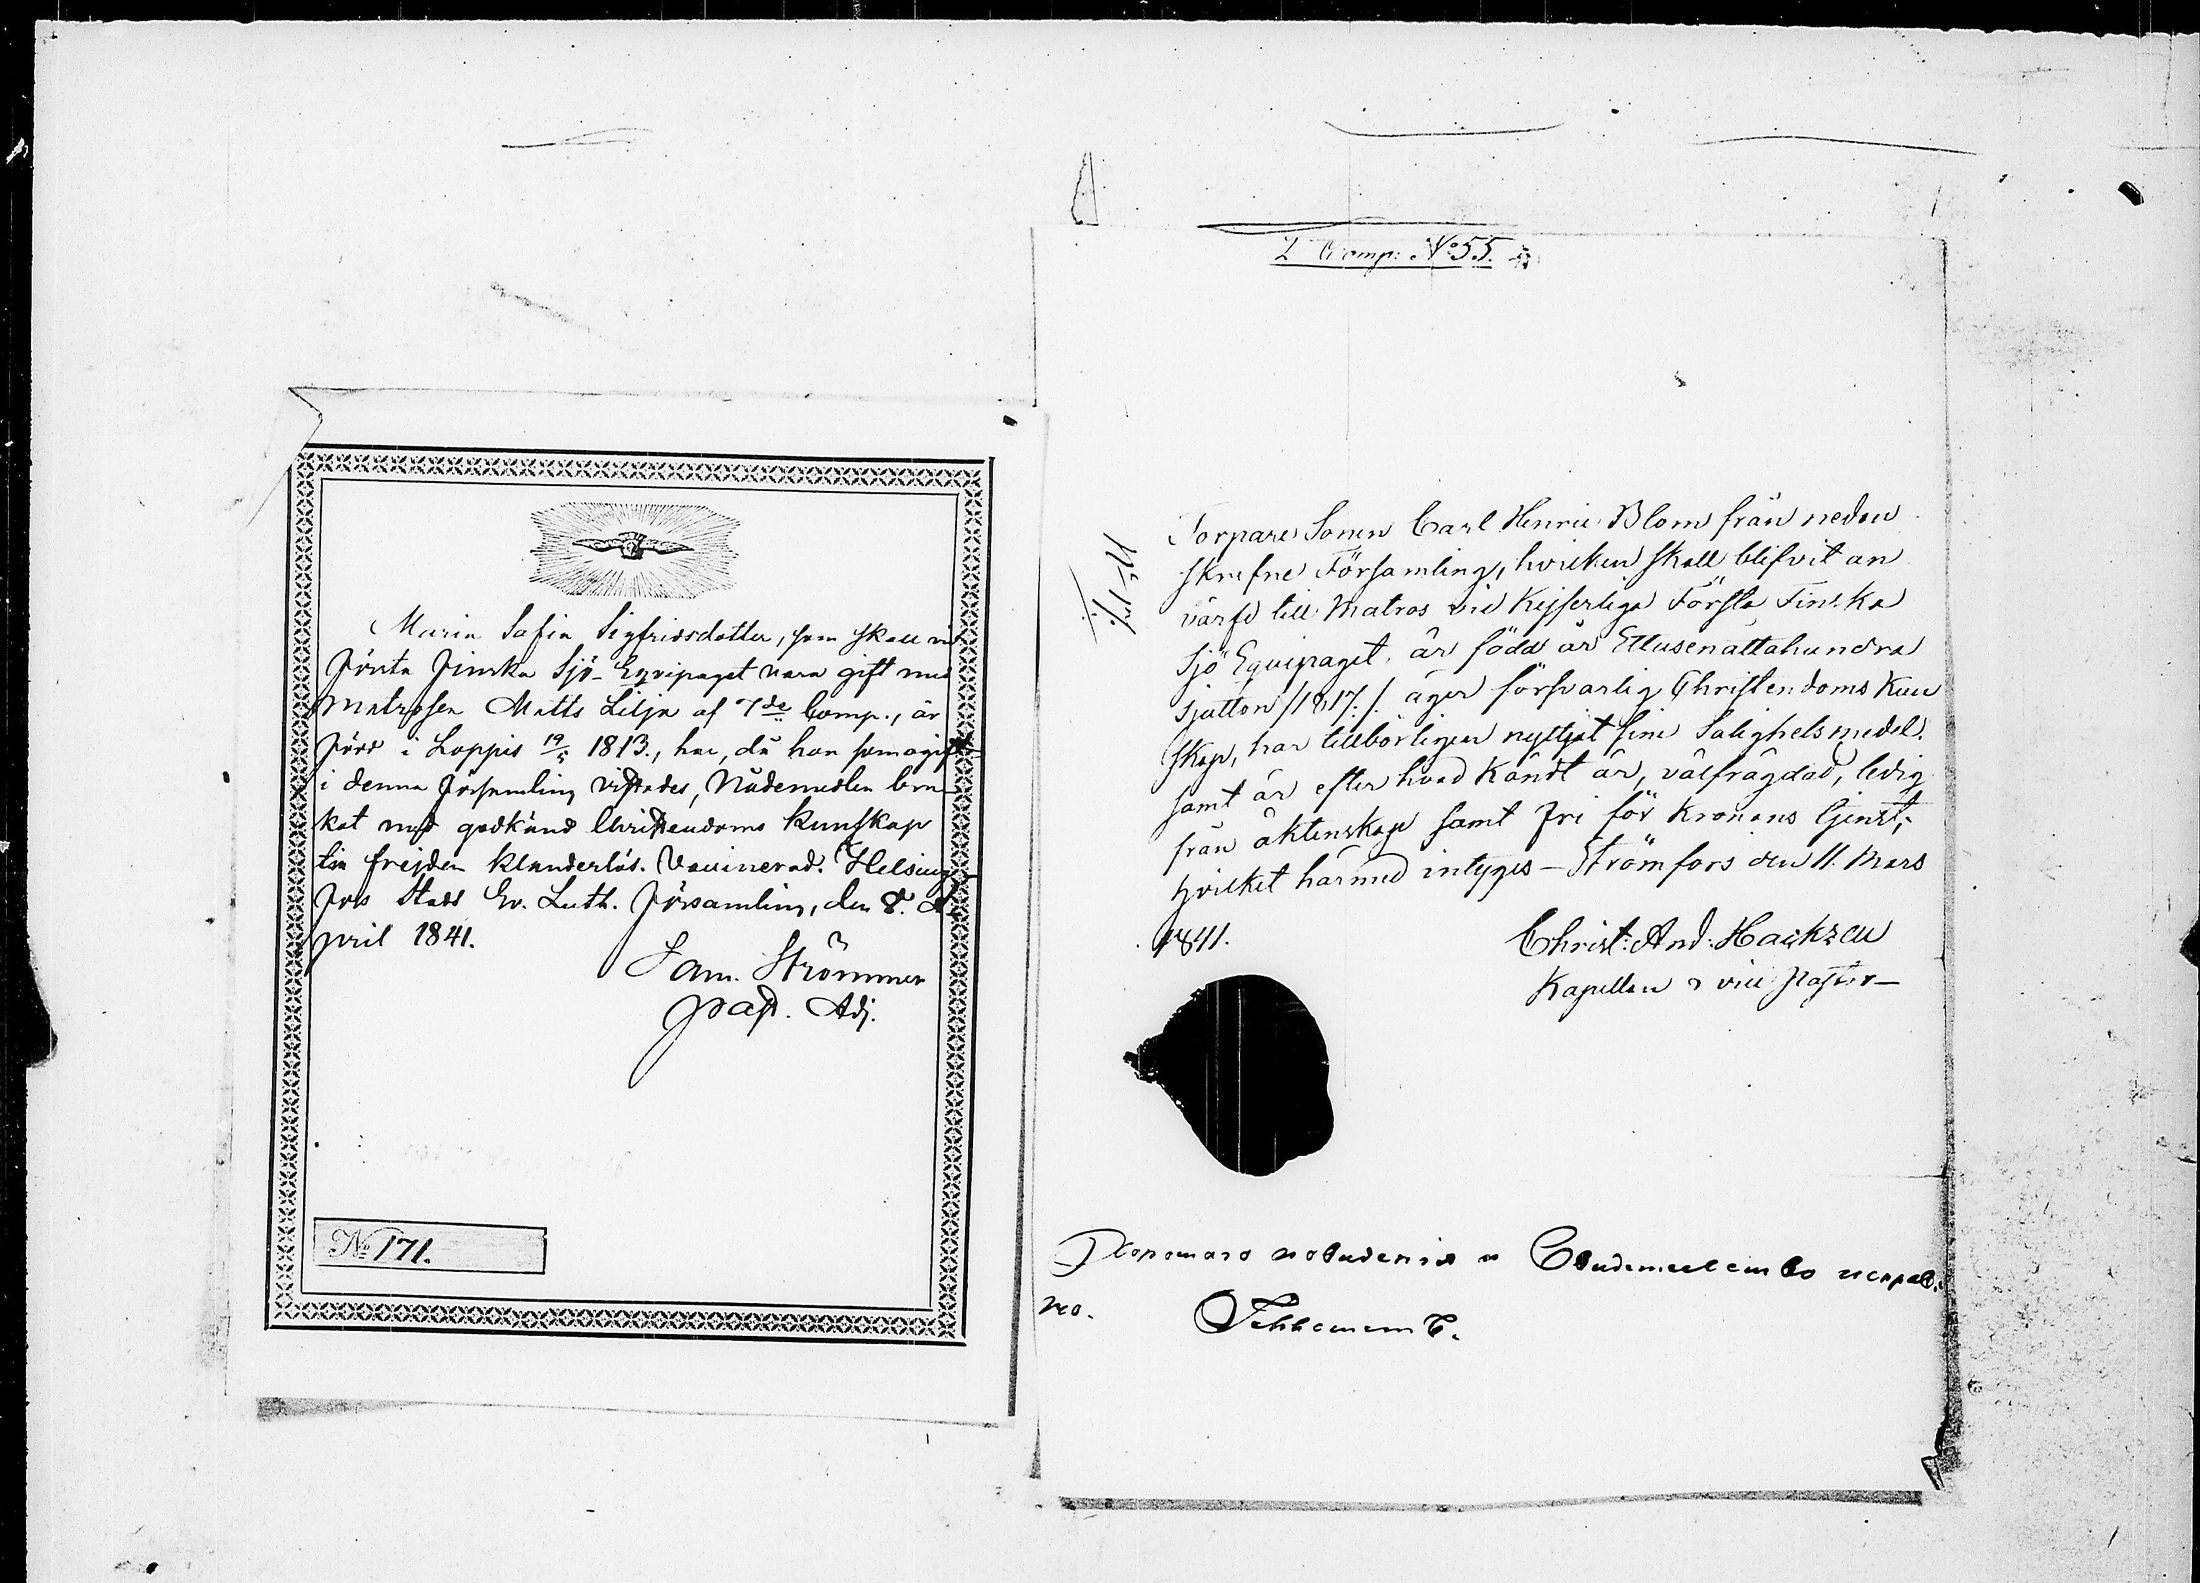 Maria Sofia Sigfridsdotter, som skall vid
Första Finska Sjö-Eqvipaget vara gift med
Matrosen Matts Lilja af 7de Comp., är
född i Loppis 19/5 1813., har, då hon som ogift
i denna församling vistades, Nådemedlen bru-
kat med godkänd Christendoms kunskap
till frejden klanderlös. Vaccinerad. Helsing-
fors Stads Ev. Luth. Församling, den 8. A-
pril 1841.
Sam. Strömmer
past. Adj.
No 171.
2 Comp: No 55.
Torpare Sonen Carl Henric Blom från nedan
skrefne Församling, hvilken skall blifvit an
värfd till Matros vid Kejserliga Första Finska
Sjö Equipaget, är född år Ettusenåttahundra
sjutton /1817./. äger försvarlig Christendoms Kun
skap, har tillbörligen nyttjat sine Salighetsmedel.
samt är efter hvad kändt är, välfrägdad, ledig
från äktenskap samt fri för Kronans tjenst;
hvilket härmed intyges - Strömfors den 11. Mars
1841.
Christ: And. Hackzell
Kapellan & vice Pastor-
Хорошаго поведенія и Свидетельство исправ-
но.